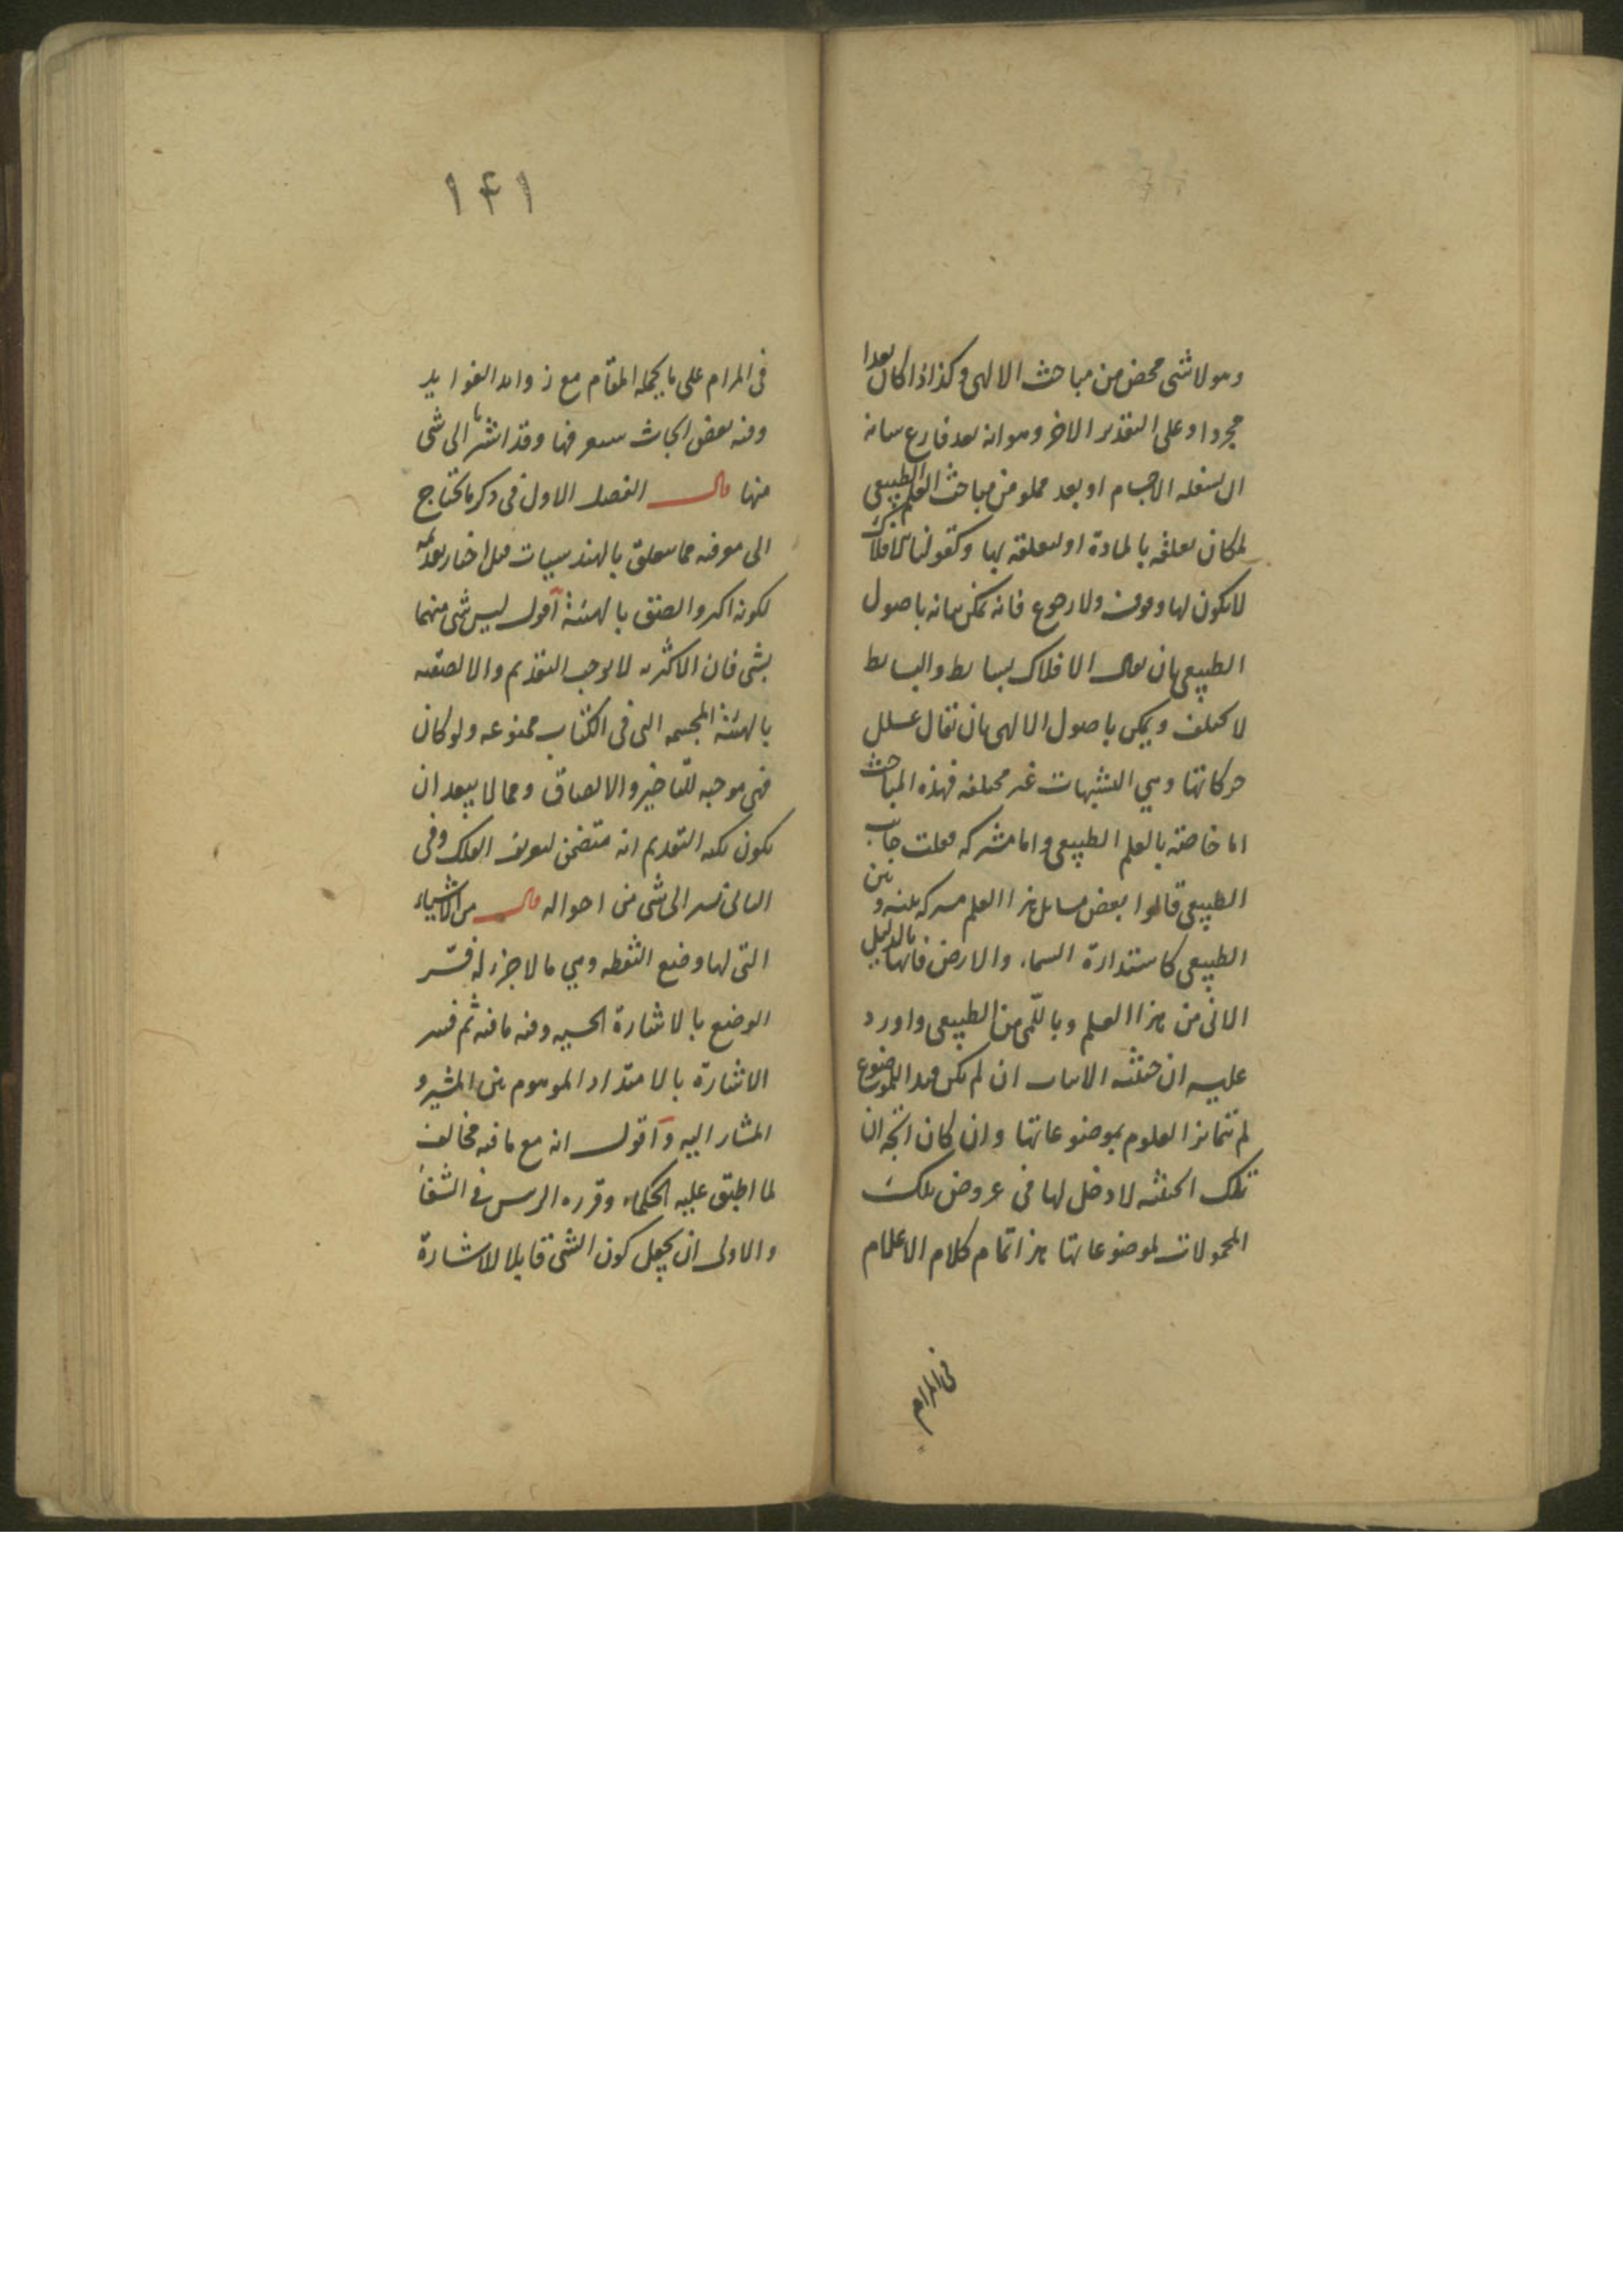 وهو لا شی محض من مباحث الالهی وکذا اذا کان بعدا
مجردا وعلی التقدیر الاخر وهو انه بعد فارغ
الاجسام او بعد مملو من مباحث العلم الطبیعی
لمکان تعلقه بالمادة او لتعلقه بها وکقولنا الافلاک
لا یکون لها وقوف ولا رجوع فانه یمکن بیانه باصول
الطبیعی بان یقال الافلاک بسایط والبسایط
لا یختلف ویمکن باصول الالهی بان یقال علل
حرکاتها وهی التشبهات غیر مختلفه فهذه المباحث
اما خاصة بالعلم الطبیعی واما مشترکه جانب
الطبیعی قالوا بعض مسایل هذا العلم مشترکه بینه وبین
الطبیعی کاستدارة السماء والارض فانها بالدلیل
الانی من هذا العلم وباللمی من الطبیعی واورد
علیه ان حیثیه الاثبات ان لم یکن قید الموضوع
لم تتمایز العلوم بموضوعاتها وان کان اتجه ان
تلک الحیثیه لا دخل لها فی عروض تلک
المحمولات لموضوعاتها هذا تمام کلام الاعلام
فی المرام
۱۴۱
فی المرام علی ما یحمله المقام مع زواید الفواید
وفیه بعض ابحاث ستعرفها وقد اشرنا الی شی
منها قال الفصل الاول فی ذکر ما یحتاج
الی معرفته مما یتعلق بالهندسیات قیل اختار تقدیمه
لکونه اکثر والصق بالهیئة اقول لیس شی منهما
بشی فان الاکثریه لا یوجب التقدیم والالصقیه
بالهیئة المجسمه التی فی الکتاب ممنوعه ولو کان
فهی موجبه للتاخیر والالصاق ومما لا یبعد ان
یکون نکته التقدیم انه متضمن لتعریف الفلک وفی
الثانی الی شی من احواله قال من الاشیاء
التی لها وضع النقطه وهی ما لا جزء له فسّر
الوضع بالاشارة الحسیه وفیه ما فیه ثم فسر
الاشارة بالامتداد الموهوم بین المشیر و
المشار الیه واقول انه مع ما فیه مخالف
لما اطبق علیه الحکماء وقرره الرئیس فی الشفا
والاولی ان یجعل کون الشی قابلا للاشارة